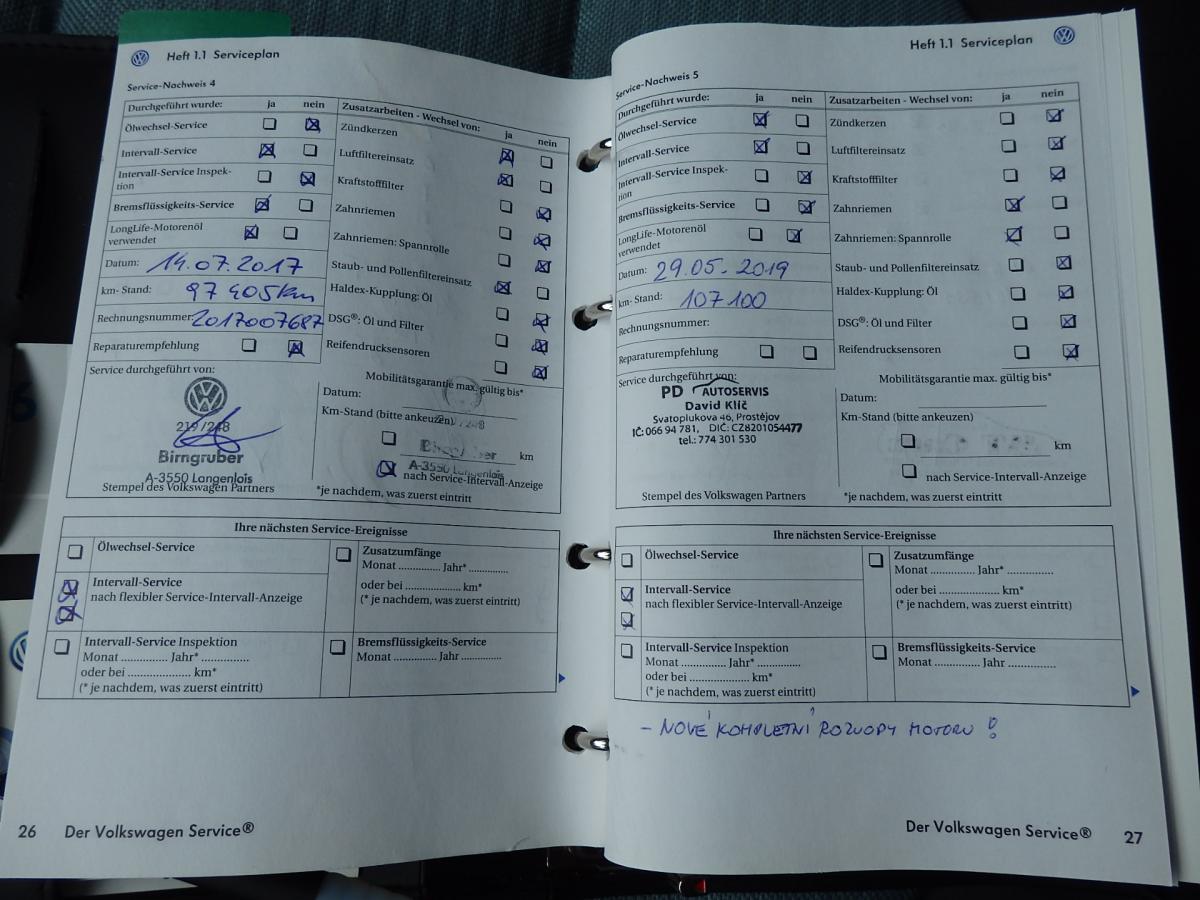 Heft 1.1 Serviceplan
Service-Nachweis 4
Durchgeführt wurde: ja nein
Ölwechsel-Service
Intervall-Service
Intervall-Service Inspek-
tion
Bremsflüssigkeits-Service
LongLife-Motorenöl
verwendet
Datum: 14.07.2017
km- Stand: 97 405km
Rechnungsnummer: 2017007687
Reparaturempfehlung
Zusatzarbeiten - Wechsel von: ja nein
Zündkerzen
Luftfiltereinsatz
Kraftstofffilter
Zahnriemen
Zahnriemen: Spannrolle
Staub- und Pollenfiltereinsatz
Haldex-Kupplung: Öl
DSG®: Öl und Filter
Reifendrucksensoren
Service durchgeführt von:
219/248
Birngruber
A-3550 Langenlois
Stempel des Volkswagen Partners
Mobilitätsgarantie max. gültig bis*
Datum:
Km-Stand (bitte ankeuzen)
km
A-3550 Langenlois
nach Service-Intervall-Anzeige
*je nachdem, was zuerst eintritt
Ihre nächsten Service-Ereignisse
Ölwechsel-Service
Intervall-Service
nach flexibler Service-Intervall-Anzeige
Intervall-Service Inspektion
Monat .............. Jahr* ..............
oder bei ................... km*
(* je nachdem, was zuerst eintritt)
Zusatzumfänge
Monat ............. Jahr* ............
oder bei ................... km*
(* je nachdem, was zuerst eintritt)
Bremsflüssigkeits-Service
Monat ............. Jahr ............
26 Der Volkswagen Service®
Heft 1.1 Serviceplan
Service-Nachweis 5
Durchgeführt wurde: ja nein
Ölwechsel-Service
Intervall-Service
Intervall-Service Inspek-
tion
Bremsflüssigkeits-Service
LongLife-Motorenöl
verwendet
Datum: 29.05.2019
km- Stand: 107 100
Rechnungsnummer:
Reparaturempfehlung
Zusatzarbeiten - Wechsel von: ja nein
Zündkerzen
Luftfiltereinsatz
Kraftstofffilter
Zahnriemen
Zahnriemen: Spannrolle
Staub- und Pollenfiltereinsatz
Haldex-Kupplung: Öl
DSG®: Öl und Filter
Reifendrucksensoren
Service durchgeführt von:
PD AUTOSERVIS
David Klíč
Svatoplukova 46, Prostějov
IČ: 066 94 781, DIČ: CZ8201054477
tel.: 774 301 530
Stempel des Volkswagen Partners
Mobilitätsgarantie max. gültig bis*
Datum:
Km-Stand (bitte ankeuzen)
km
nach Service-Intervall-Anzeige
*je nachdem, was zuerst eintritt
Ihre nächsten Service-Ereignisse
Ölwechsel-Service
Intervall-Service
nach flexibler Service-Intervall-Anzeige
Intervall-Service Inspektion
Monat .............. Jahr* ..............
oder bei ................... km*
(* je nachdem, was zuerst eintritt)
Zusatzumfänge
Monat ............. Jahr* ............
oder bei ................... km*
(* je nachdem, was zuerst eintritt)
Bremsflüssigkeits-Service
Monat ............. Jahr ............
- NOVÉ KOMPLETNÍ ROZVODY MOTORU !
Der Volkswagen Service® 27